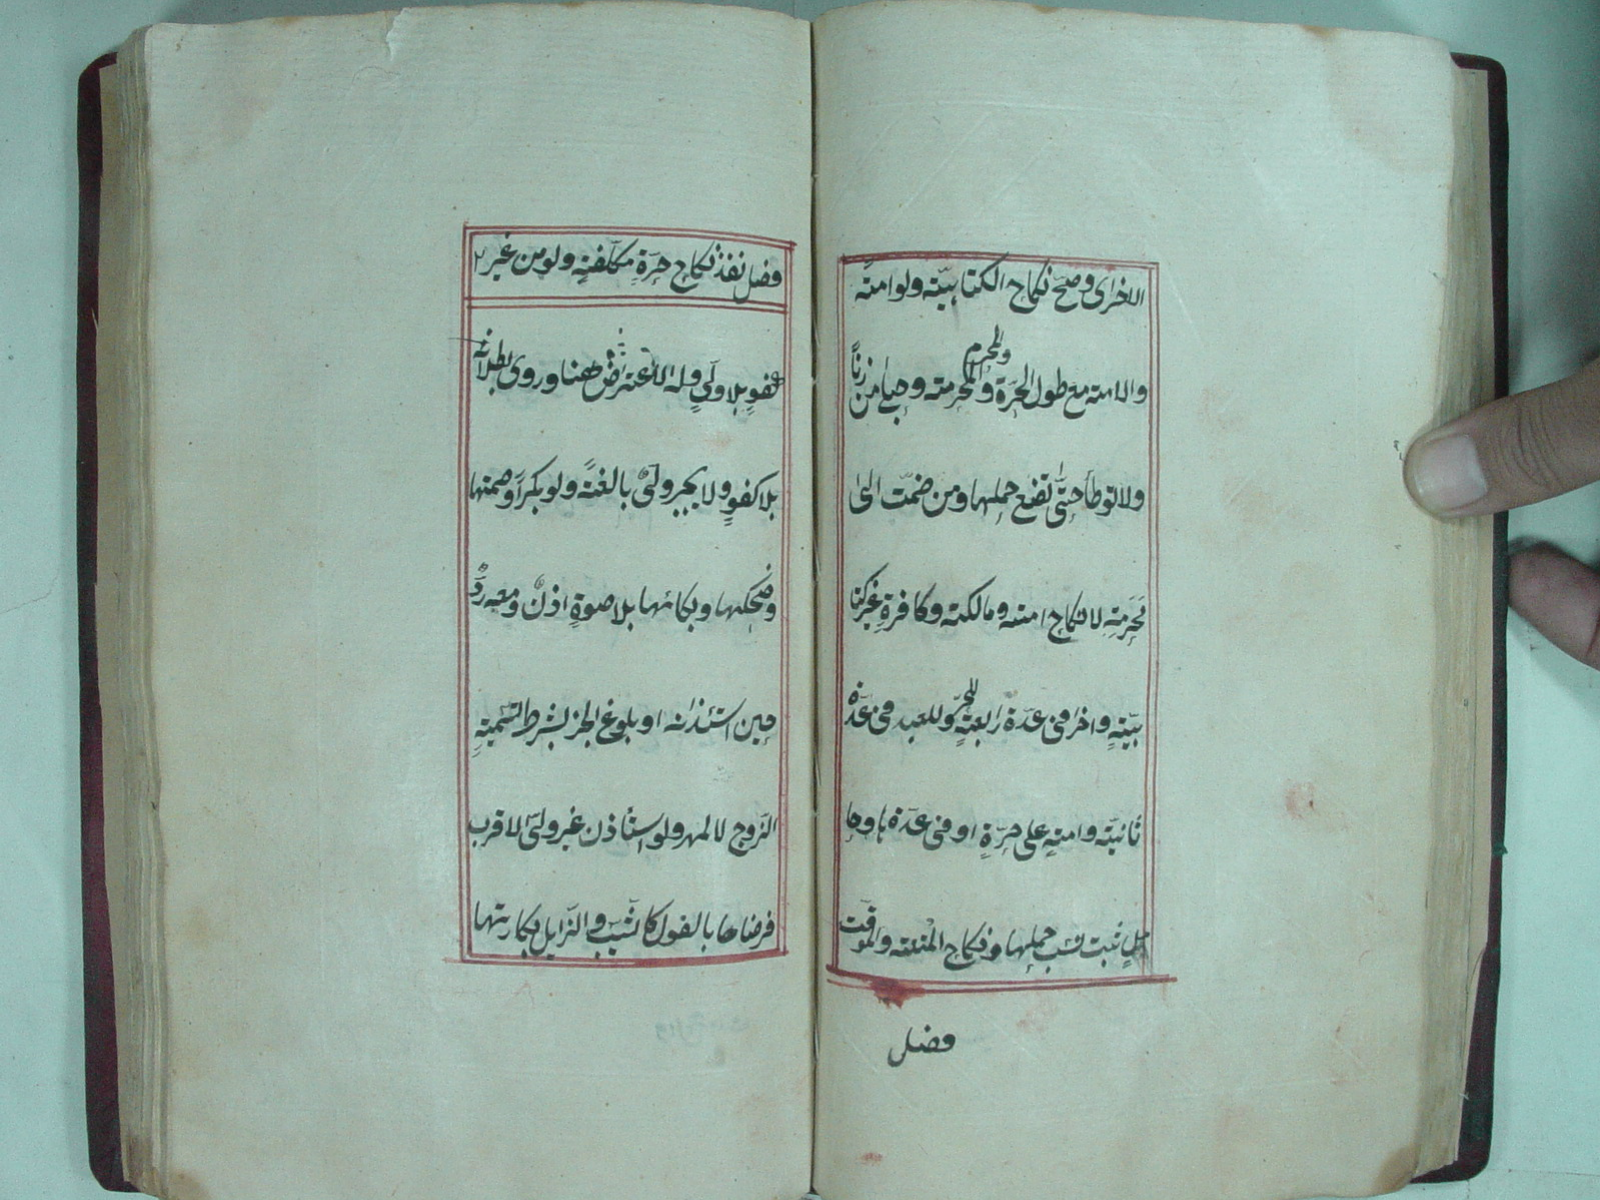 الاخرای وصحّ نكاح الكتابيّة ولو امته
والامته مع طول الحرّة والمحرم والمحرمته وحبلی من زنًا
ولا توطأ حتّی تضع حملها ومن ضمّت الی
محرمةٍ لا نكاح امته ومالكته وكافرةٍ غير كتا
بيّةٍ واخرا فی عدّة رابعةٍ للحرّ وللعبد فی عدّة
ثانيّة وامتهٍ علی حرّةٍ او فی عدّة ها وحا
ملٍ ثبت نسب حملها ونكاح المتعته والموقّت
فصل
فصل نفذ نكاح حرّةٍ مكلّفتهٍ ولو من غير
كفوٍ بلا ولیّ وله الاعتراض ههنا وروی بطلانه
بلا كفوٍ ولا يجبر ولیّ بالغتهً ولو بكرًا وصمتها
وضحكها وبكائها بلا صوةٍ اذنٌ ومعه ردٌّ
حين استئذانه او بلوغ الخبر بشرط التسميتهٍ
الزّوج لا المهر ولو استأذن غير ولیّ الاقرب
فرضاها بالقول كالثيّب والزّايل بكارتها